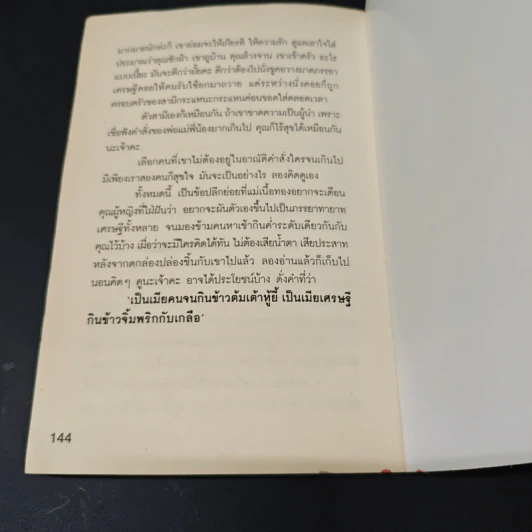 มากมายนักต่อกี เขาย่อมจะให้เกียรติ ให้ความรัก ดูแลเอาใจใส่
ประมาณว่าคุณซักผ้า เขาถูบ้าน คุณล้างจาน เขาเข้าครัว อะไร
แบบเนี้ยะ มันจะดีกว่ามั้ยคะ ดีกว่าต้องไปนั่งชูคอวางมาดภรรยา
เศรษฐีคอยให้คนรับใช้ยกมาถวาย แต่ระหว่างนั่งคอยก็ถูก
ครอบครัวของสามีกระแหนะกระแหนค่อนขอดใส่ตลอดเวลา
ตัวสามีเองก็เหมือนกัน ถ้าเขาขาดความเป็นผู้นำ เพราะ
เชื่อฟังคำสั่งของพ่อแม่พี่น้องมากเกินไป คุณก็ไร้สุขได้เหมือนกัน
นะเจ้าคะ
เลือกคนที่เขาไม่ต้องอยู่ในอาณัติคำสั่งใครจนเกินไป
มีเพียงเราสองคนก็สุขใจ มันจะเป็นอย่างไร ลองคิดดูเอง
ทั้งหมดนี้ เป็นข้อปลีกย่อยที่แม่เนื้อทองอยากจะเตือน
คุณผู้หญิงที่ใฝ่ฝันว่า อยากจะผันตัวเองขึ้นไปเป็นภรรยาทายาท
เศรษฐีทั้งหลาย จนมองข้ามคนหาเช้ากินค่ำระดับเดียวกันกับ
คุณไว้บ้าง เผื่อว่าจะมีใครคิดได้ทัน ไม่ต้องเสียน้ำตา เสียประสาท
หลังจากตกล่องปล่องชิ้นกับเขาไปแล้ว ลองอ่านแล้วก็เก็บไป
นอนคิดๆ ดูนะเจ้าคะ อาจได้ประโยชน์บ้าง ดั่งคำที่ว่า
'เป็นเมียคนจนกินข้าวต้มเต้าหู้ยี้ เป็นเมียเศรษฐี
กินข้าวจิ้มพริกกับเกลือ'
144